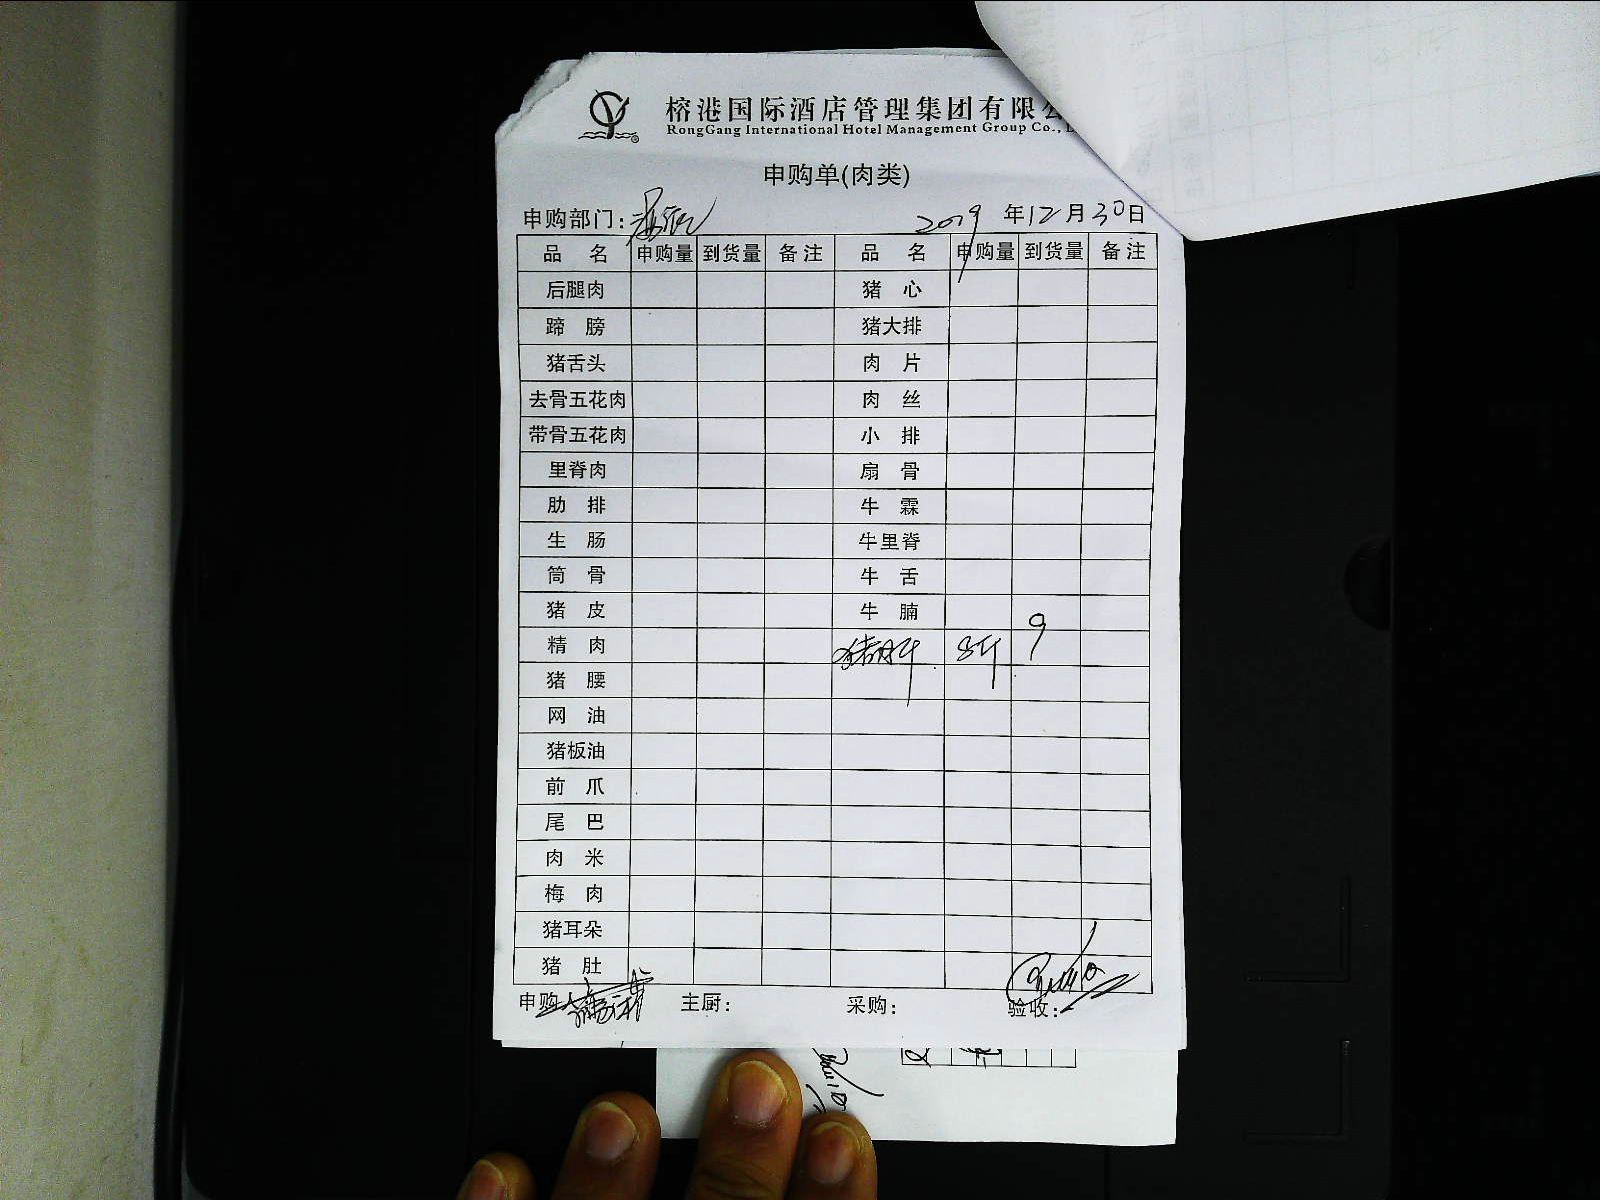 榕港国际酒店管理集团有限公
RongGang International Hotel Management Group Co., L
申购单(肉类)
申购部门: 2019年12月30日
品名 申购量 到货量 备注 品名 申购量 到货量 备注
后腿肉 猪心
蹄膀 猪大排
猪舌头 肉片
去骨五花肉 肉丝
带骨五花肉 小排
里脊肉 扇骨
肋排 牛霖
生肠 牛里脊
筒骨 牛舌
猪皮 牛腩
精肉 8斤 9
猪腰
网油
猪板油
前爪
尾巴
肉米
梅肉
猪耳朵
猪肚
申购人 主厨: 采购: 验收: